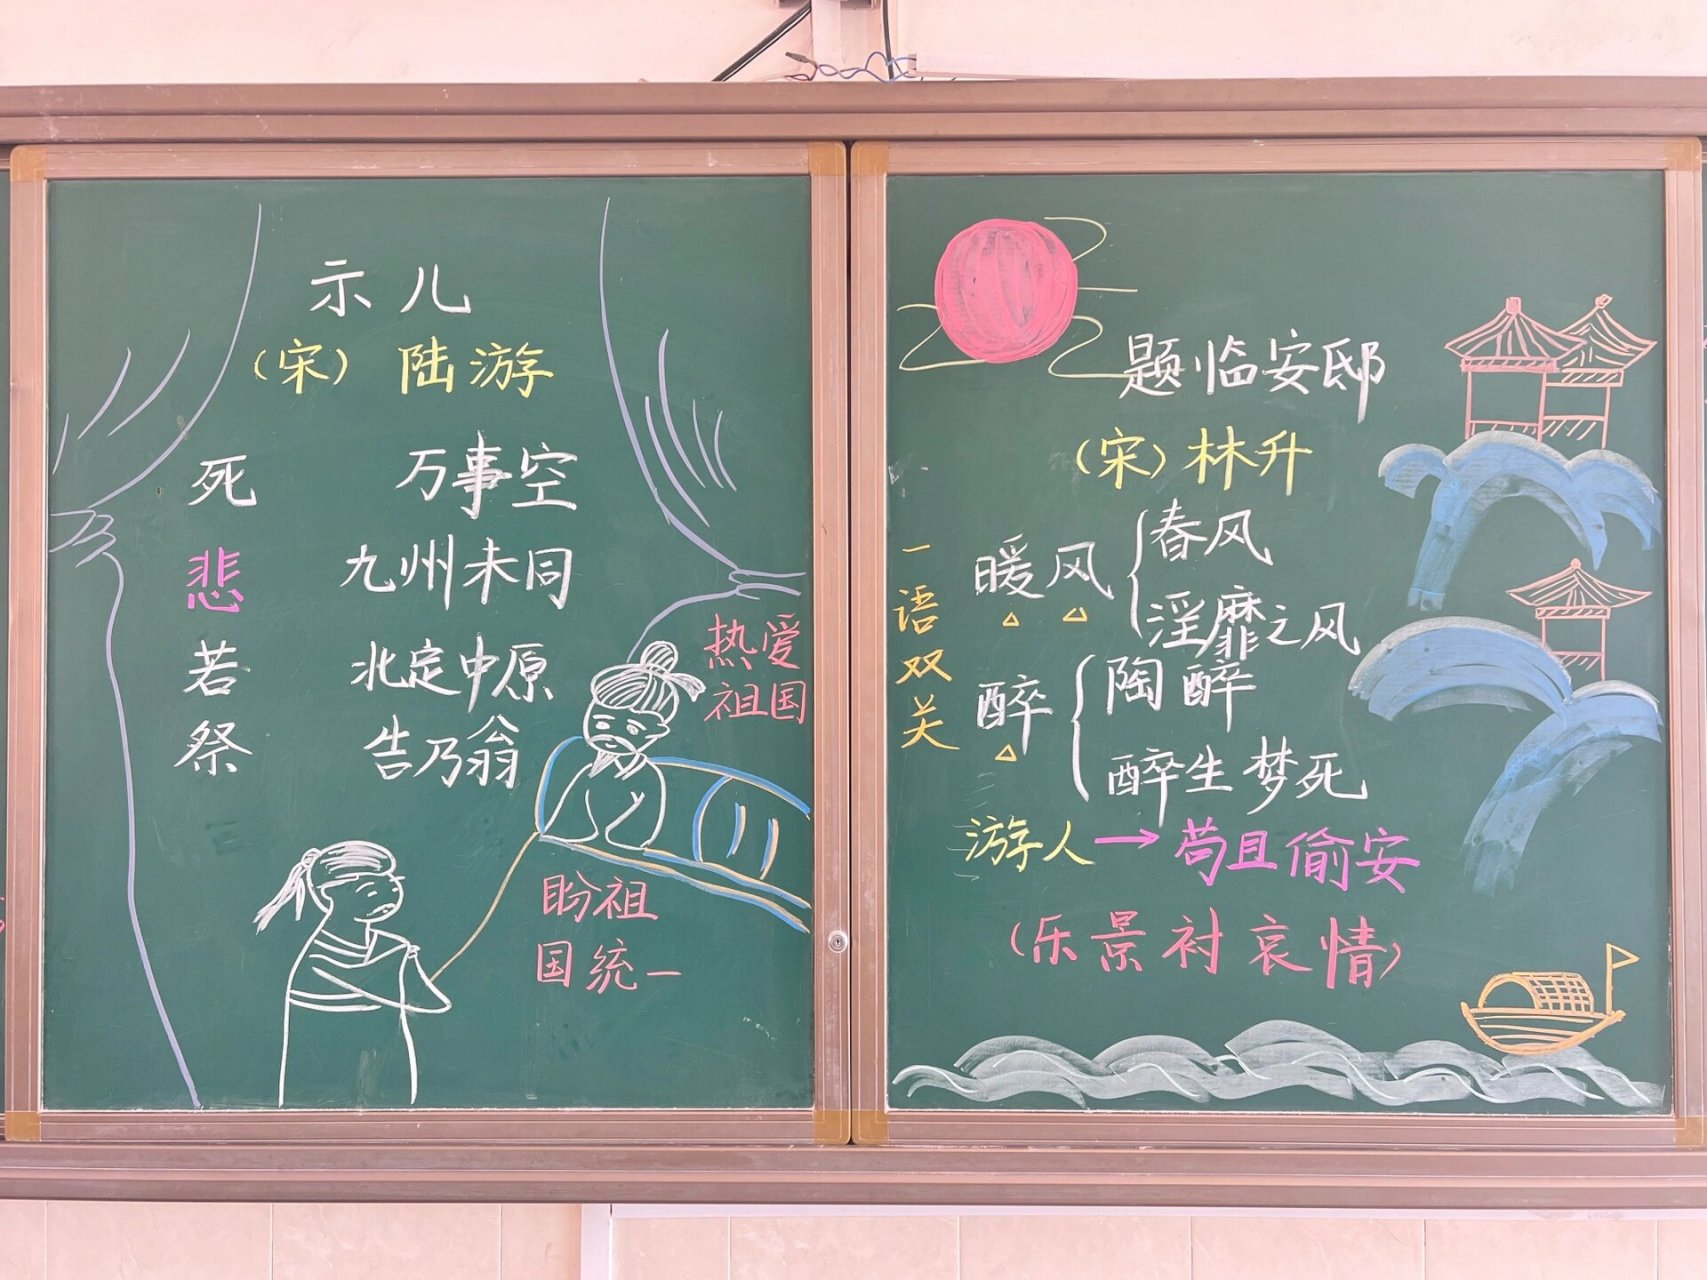 示儿
（宋）陆游
死 万事空
悲 九州未同
若 北定中原
祭 告乃翁
热爱
祖国
盼祖
国统一
题临安邸
（宋）林升
一语双关
暖风 春风
淫靡之风
醉 陶醉
醉生梦死
游人→苟且偷安
（乐景衬哀情）